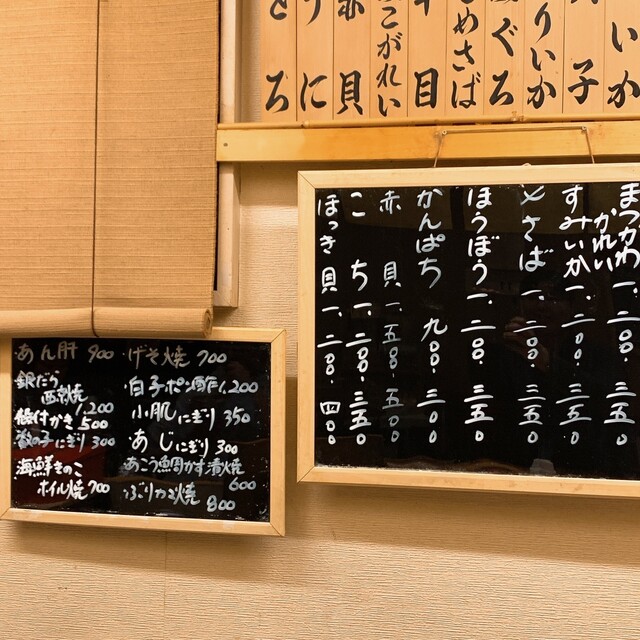 いか
子
りいか
ぐろ
めさば
目
こがれい
赤貝
うに
とろ
まつかわ
かれい 一、二〇〇、三五〇
すみいか 一、二〇〇、三五〇
〆さば 一、二〇〇、三五〇
ほうぼう 一、二〇〇、三五〇
かんぱち 九〇〇、三五〇
赤貝 一、五〇〇、五〇〇
こち 一、二〇〇、三五〇
ほっき貝 一、二〇〇、四〇〇
あん肝 900
銀だら
西京焼 1,200
殻付かき 500
数の子にぎり 300
海鮮きのこ
ホイル焼 700
げそ焼 700
白子ポン酢 1,200
小肌にぎり 350
あじにぎり 300
あこう鯛かす漬焼
600
ぶりカマ焼
800